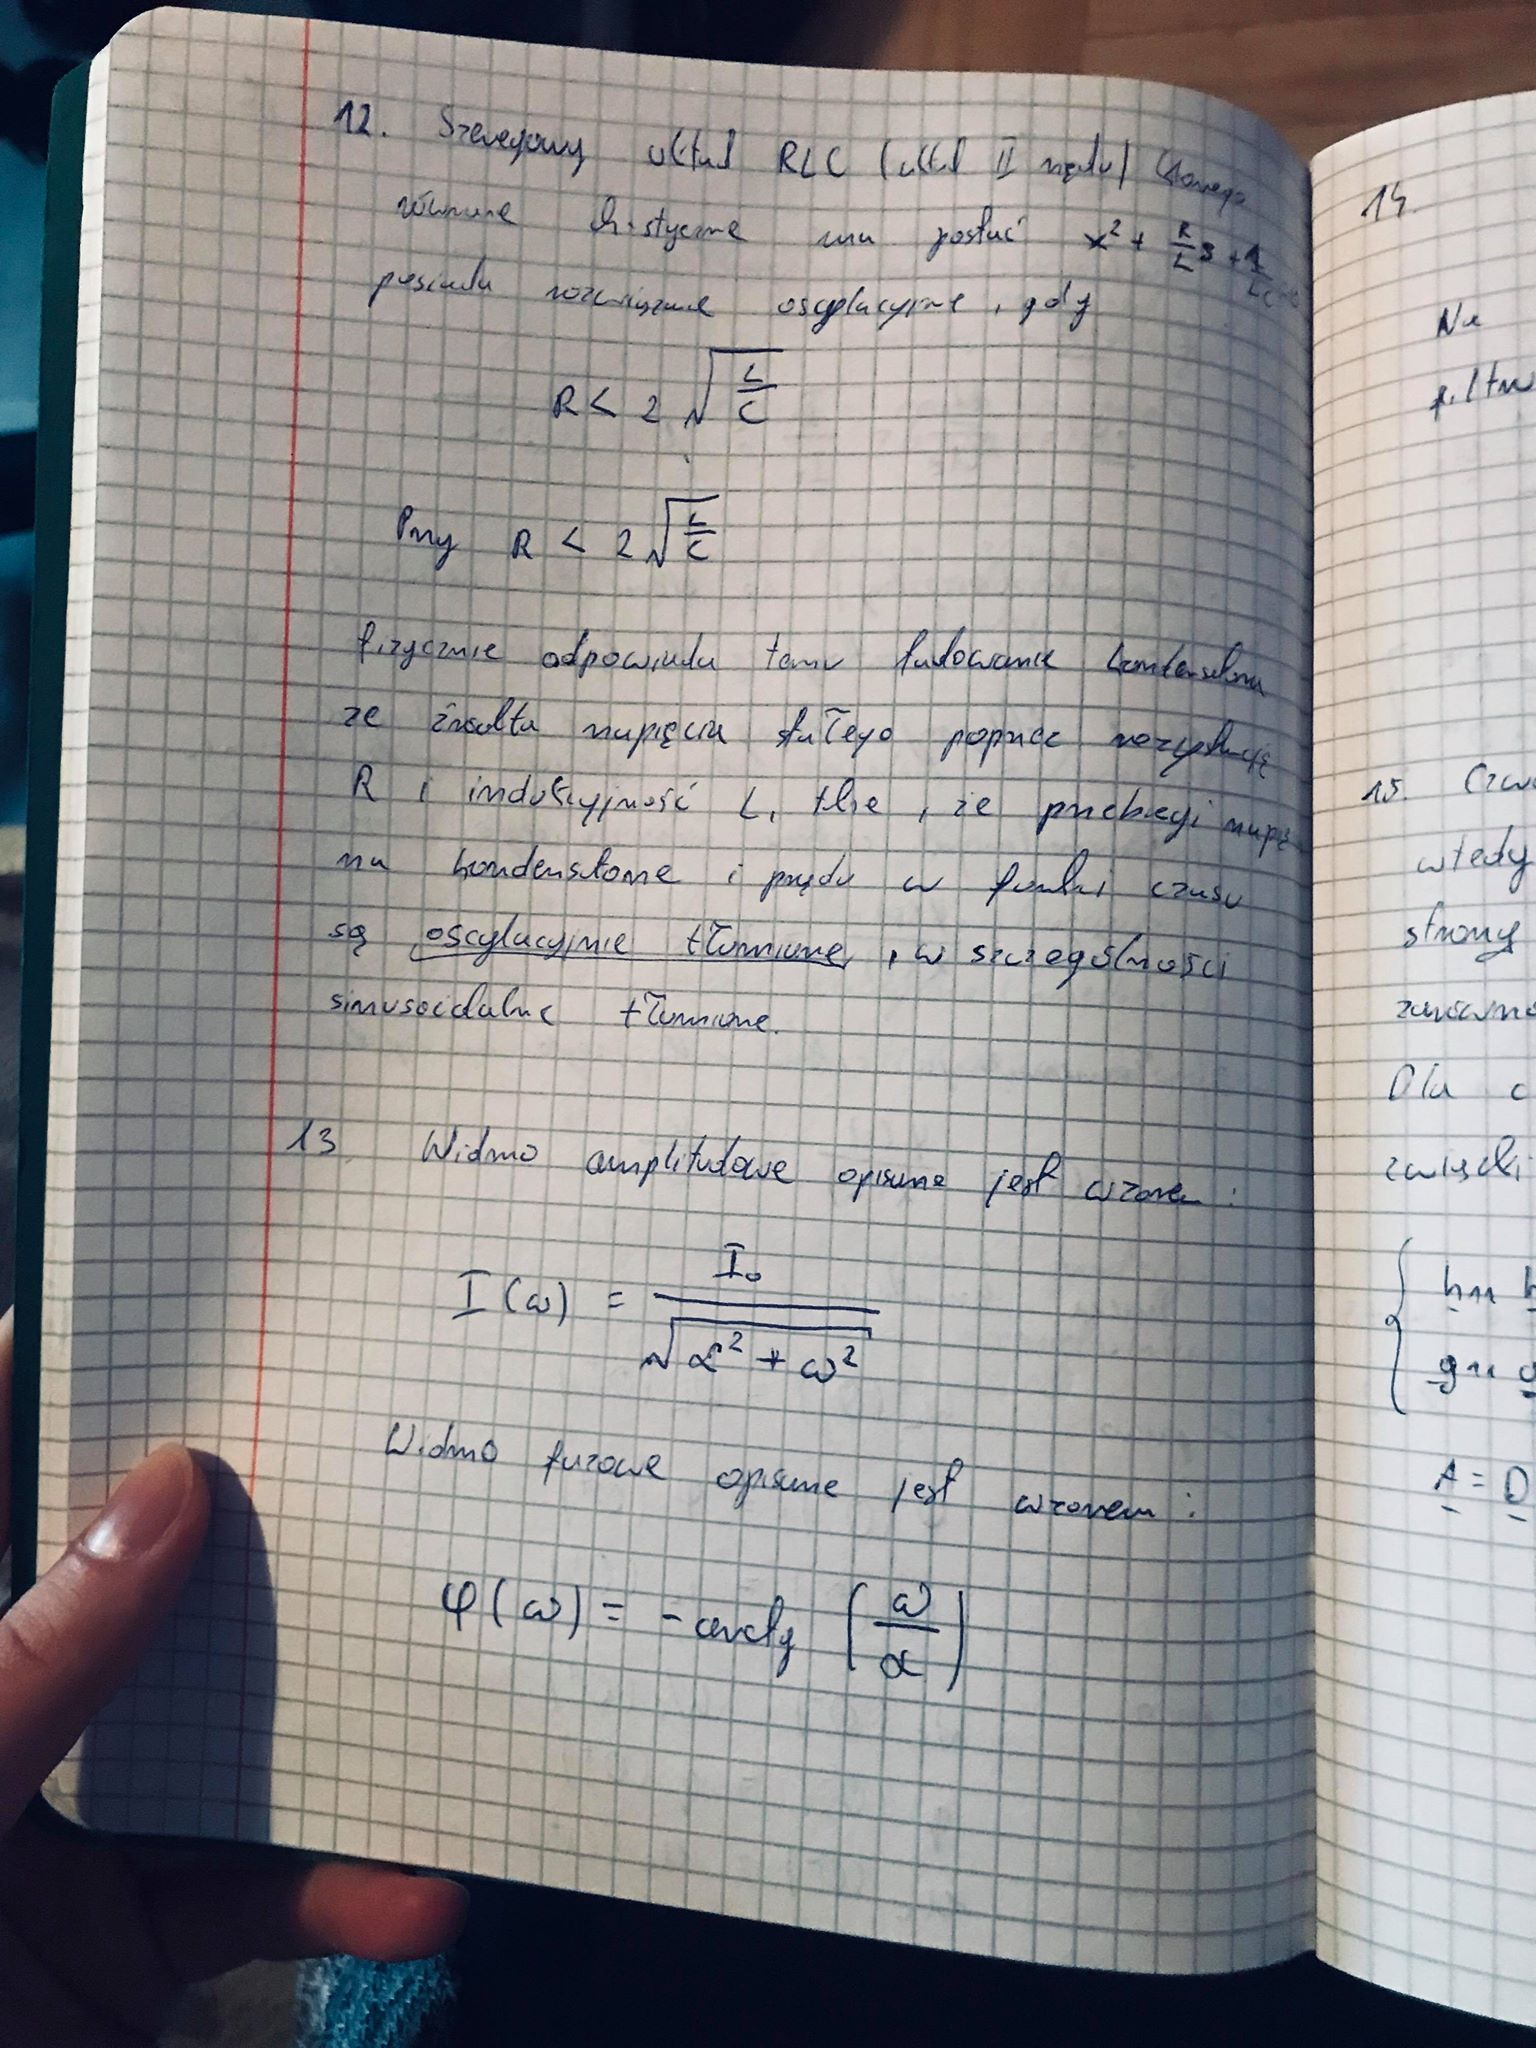 12. Szeregowy układ RLC (układ II rzędu) którego
równanie ch-styczne ma postać x² + R/L s + 1/LC
posiada rozwiązanie oscylacyjne, gdy
R < 2 √(L/C)
Przy R < 2 √(L/C)
fizycznie odpowiada temu ładowanie kondensatora
ze źródła napięcia stałego poprzez rezystancję
R i indukcyjność L, że przebiegi napię
na kondensatorze i prądu w funkcji czasu
są oscylacyjnie tłumione, w szczególności
sinusoidalne tłumione.
13 Widmo amplitudowe opisane jest wzorem:
I(ω) = I₀ / √(α² + ω²)
Widmo fazowe opisane jest wzorem:
φ(ω) = - arctg (ω/α)
14.
Na
filtru
15. Czwó
wtedy
strony
zarówno
Dla c
związki
h₁₁ h
g₁₁ g
A = D